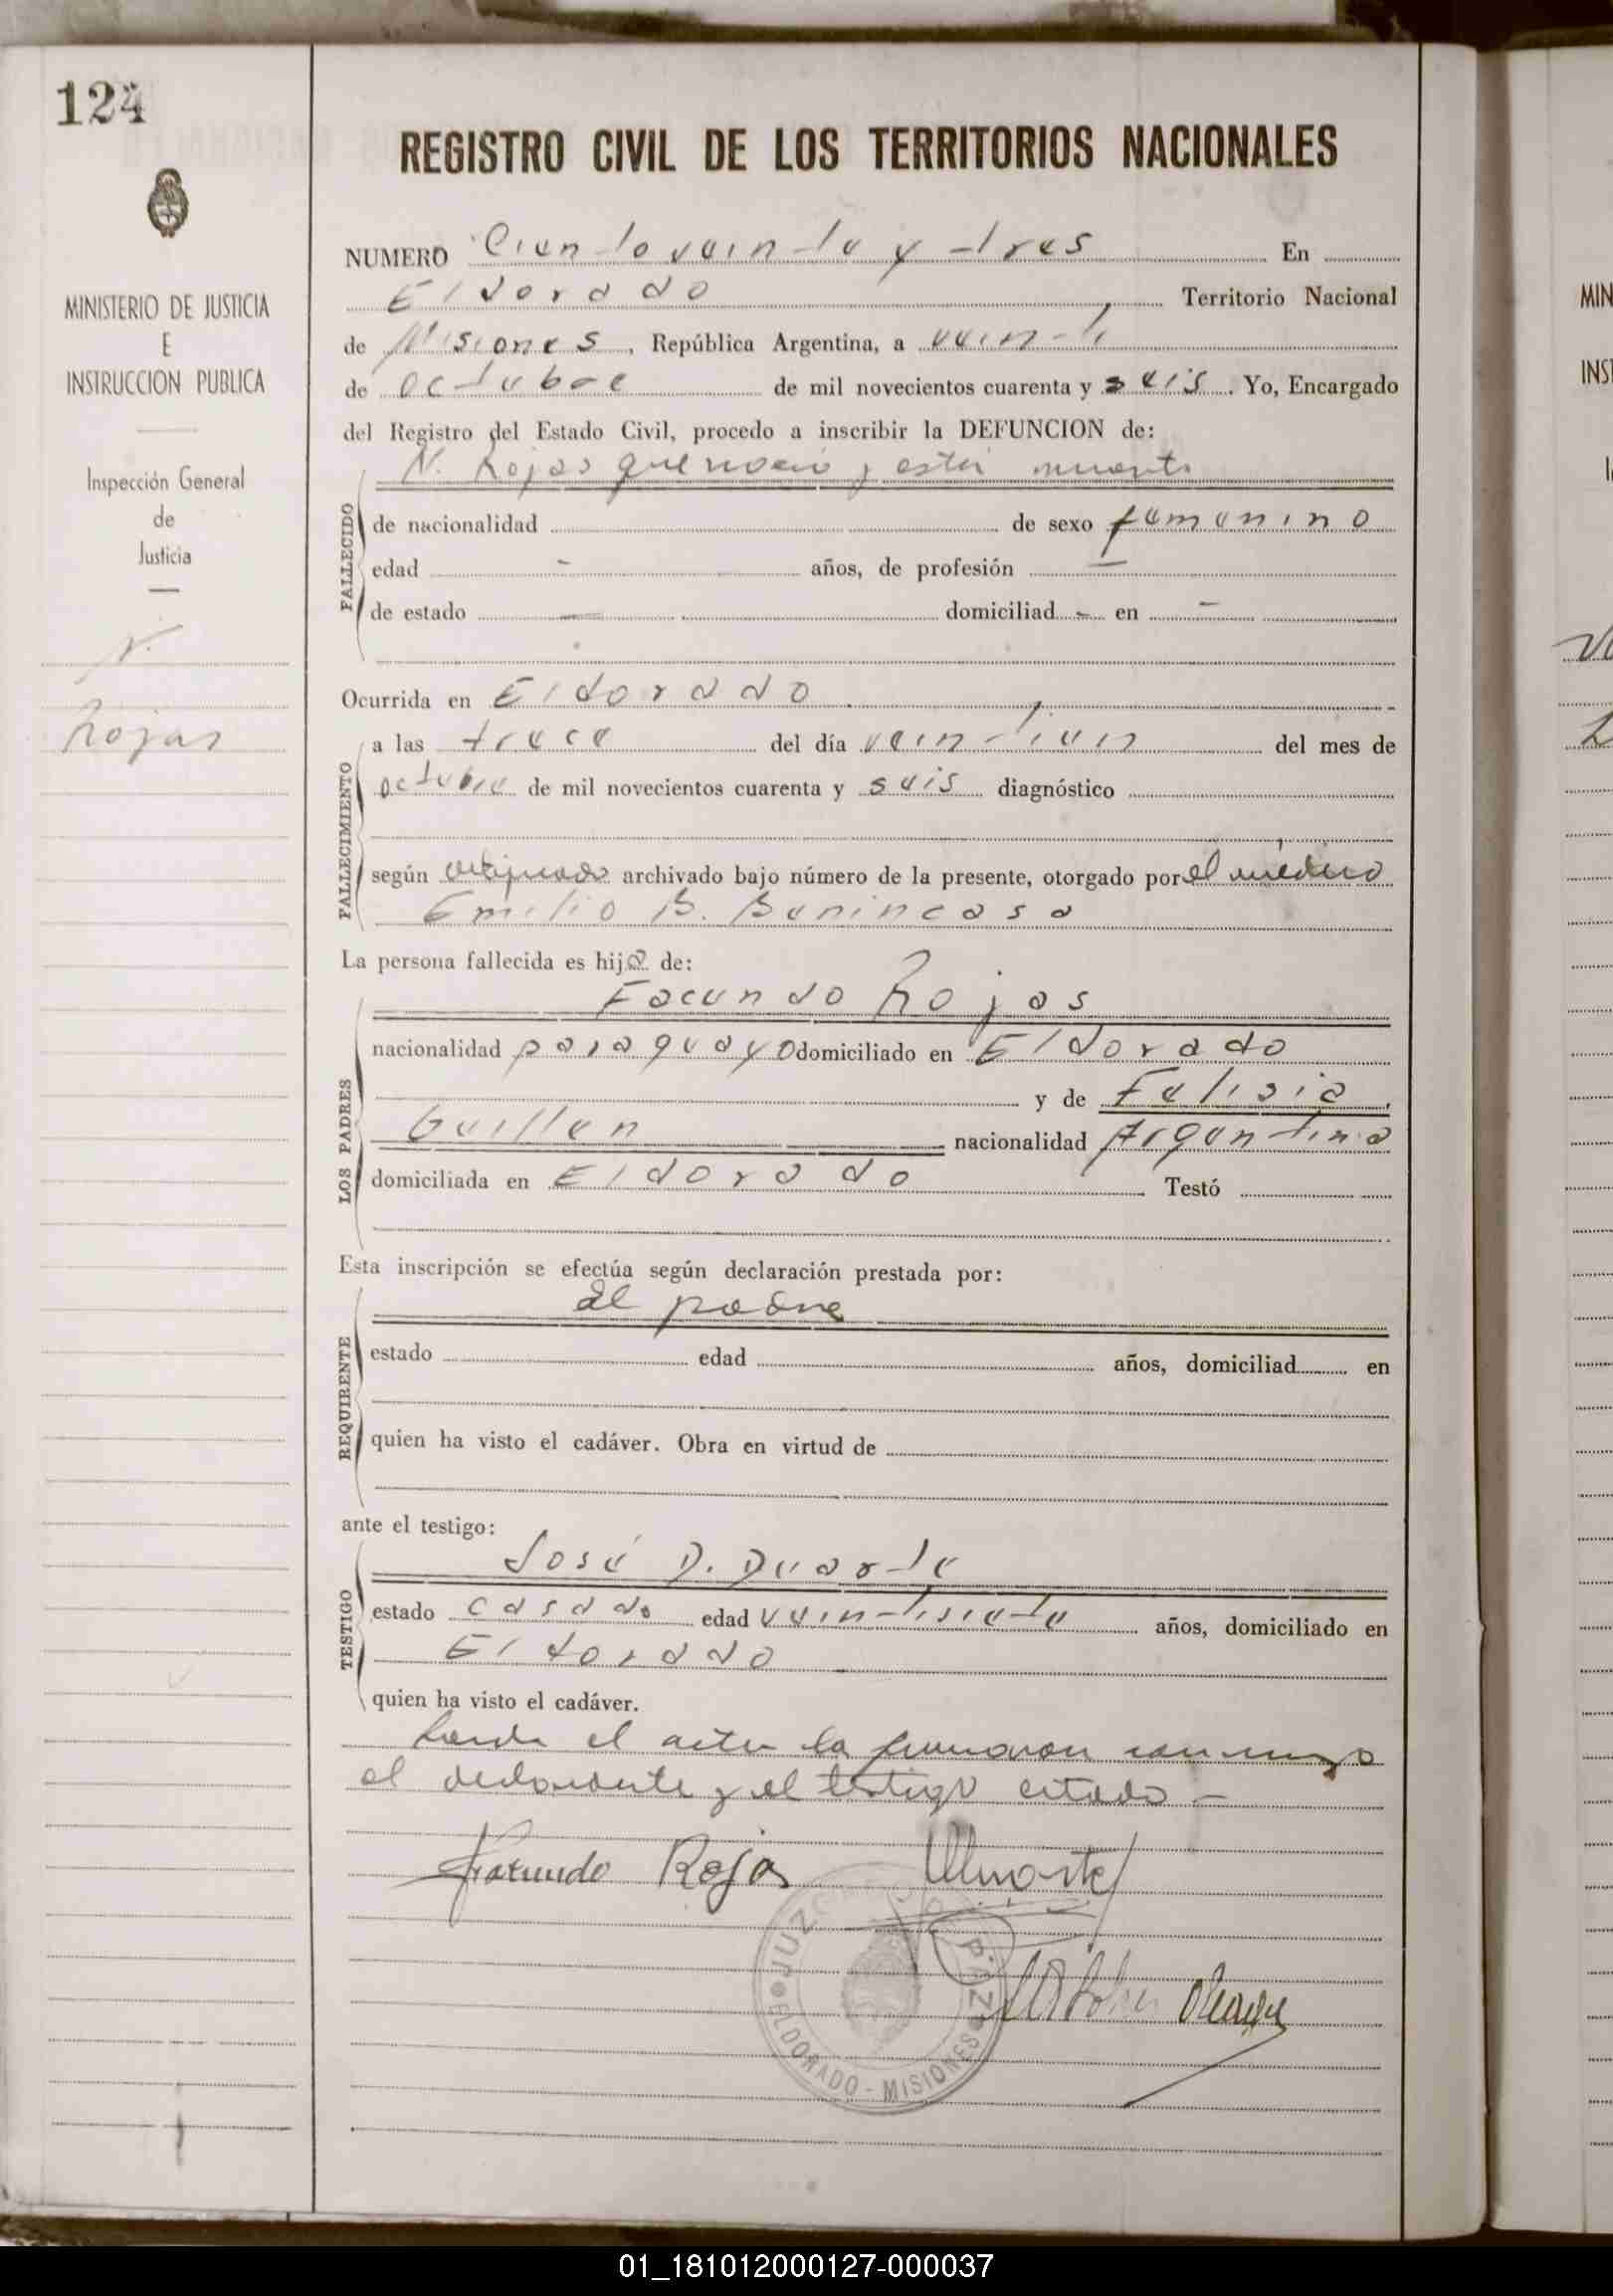 124
MINISTERIO DE JUSTICIA
E
INSTRUCCION PUBLICA
Inspección General
de
Justicia
N.
Rojas
REGISTRO CIVIL DE LOS TERRITORIOS NACIONALES
NUMERO Ciento veinte y tres En
Eldorado Territorio Nacional
de Misiones, República Argentina, a
de octubre de mil novecientos cuarenta y seis. Yo, Encargado
del Registro del Estado Civil, procedo a inscribir la DEFUNCION de:
N. Rojas que nació y está muerta
FALLECIDO
de nacionalidad de sexo femenino
edad - años, de profesión -
de estado - domiciliad - en -
Ocurrida en Eldorado
FALLECIMIENTO
a las trece del día del mes de
octubre de mil novecientos cuarenta y seis diagnóstico
según certificado archivado bajo número de la presente, otorgado por el médico
Emilio B. Benincasa
La persona fallecida es hija de:
LOS PADRES
Facundo Rojas
nacionalidad paraguayo domiciliado en Eldorado
y de Felisia
Guillen nacionalidad Argentina
domiciliada en Eldorado Testó
Esta inscripción se efectúa según declaración prestada por:
REQUIRENTE
el padre
estado edad años, domiciliad en
quien ha visto el cadáver. Obra en virtud de
ante el testigo:
TESTIGO
José D. Duarte
estado casado edad veintisiete años, domiciliado en
Eldorado
quien ha visto el cadáver.
el acta la firmaron conmigo
el declarante y el testigo citado -
Facundo Rojas Duarte
JUZ PAZ
ELDORADO - MISIONES
MIN
INS
01_181012000127-000037